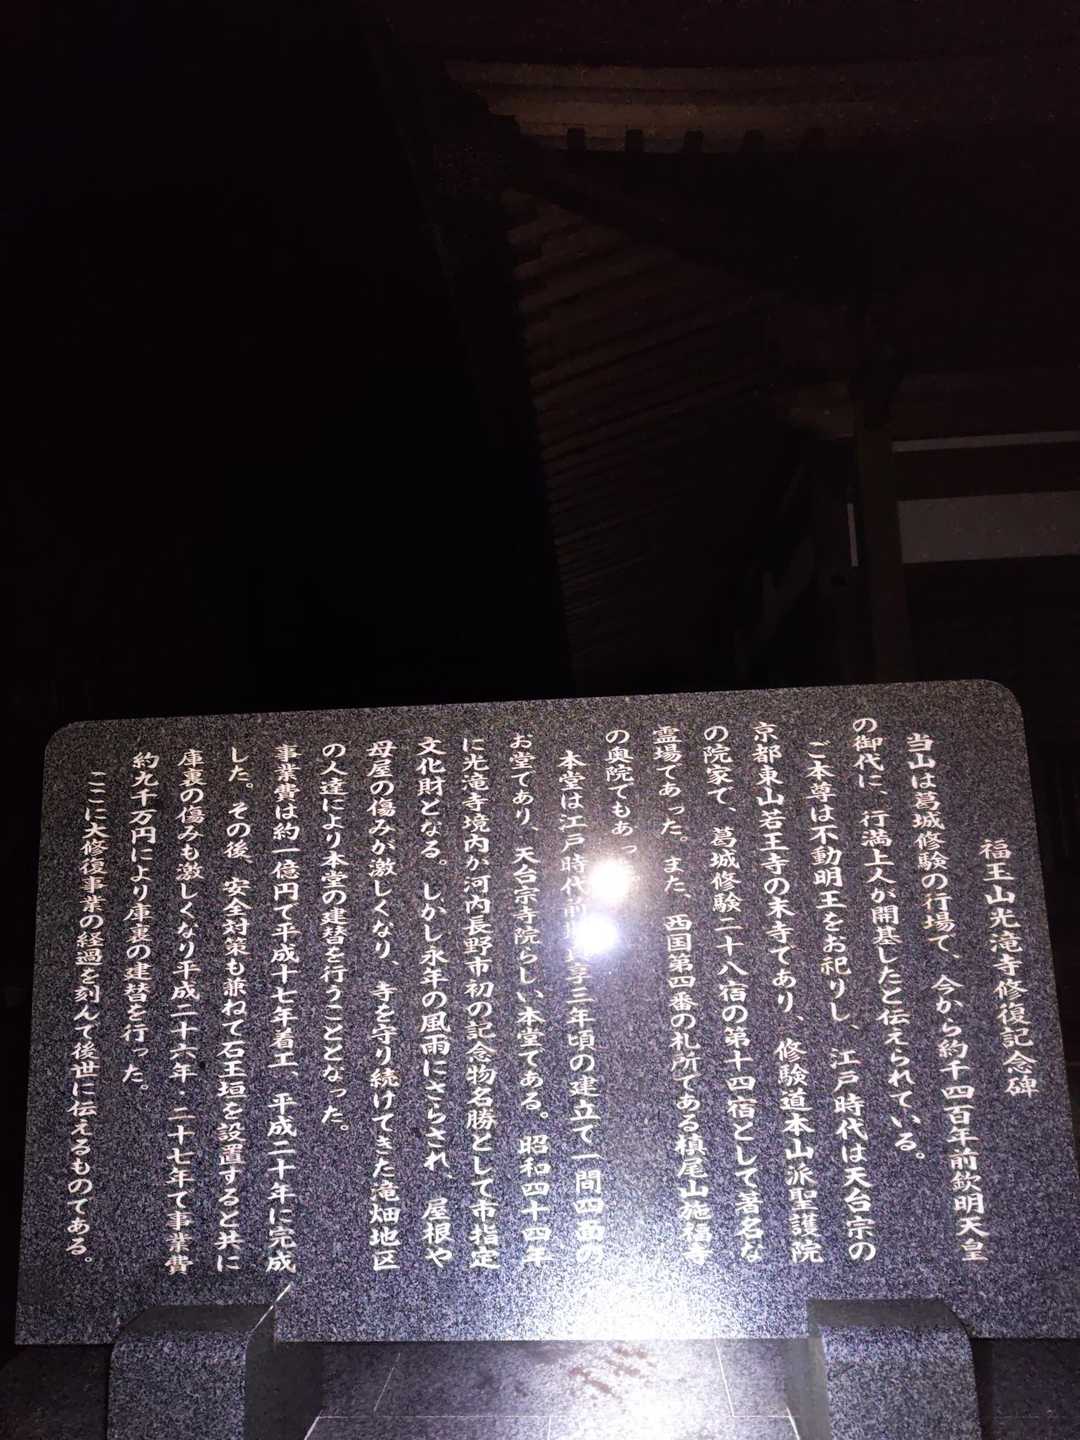 福王山光滝寺修復記念碑
当山は葛城修験の行場で、今から約千四百年前欽明天皇
の御代に、行満上人が開基したと伝えられている。
ご本尊は不動明王をお祀りし、江戸時代は天台宗の
京都東山若王寺の末寺であり、修験道本山派聖護院
の院家で、葛城修験二十八宿の第十四宿として著名な
霊場であった。また、西国第四番の札所である槙尾山施福寺
の奥院でもあっ
本堂は江戸時代前期 享三年頃の建立で一間四面の
お堂であり、天台宗寺院らしい本堂である。昭和四十四年
に光滝寺境内が河内長野市初の記念物名勝として市指定
文化財となる。しかし永年の風雨にさらされ、屋根や
母屋の傷みが激しくなり、寺を守り続けてきた滝畑地区
の人達により本堂の建替を行うこととなった。
事業費は約一億円で平成十七年着工、平成二十年に完成
した。その後、安全対策も兼ねて石玉垣を設置すると共に
庫裏の傷みも激しくなり平成二十六年・二十七年で事業費
約九千万円により庫裏の建替を行った。
ここに大修復事業の経過を刻んで後世に伝えるものである。